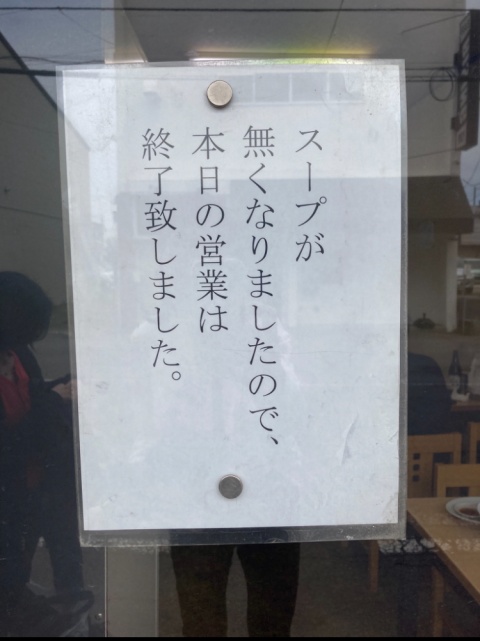 スープが
無くなりましたので、
本日の営業は
終了致しました。